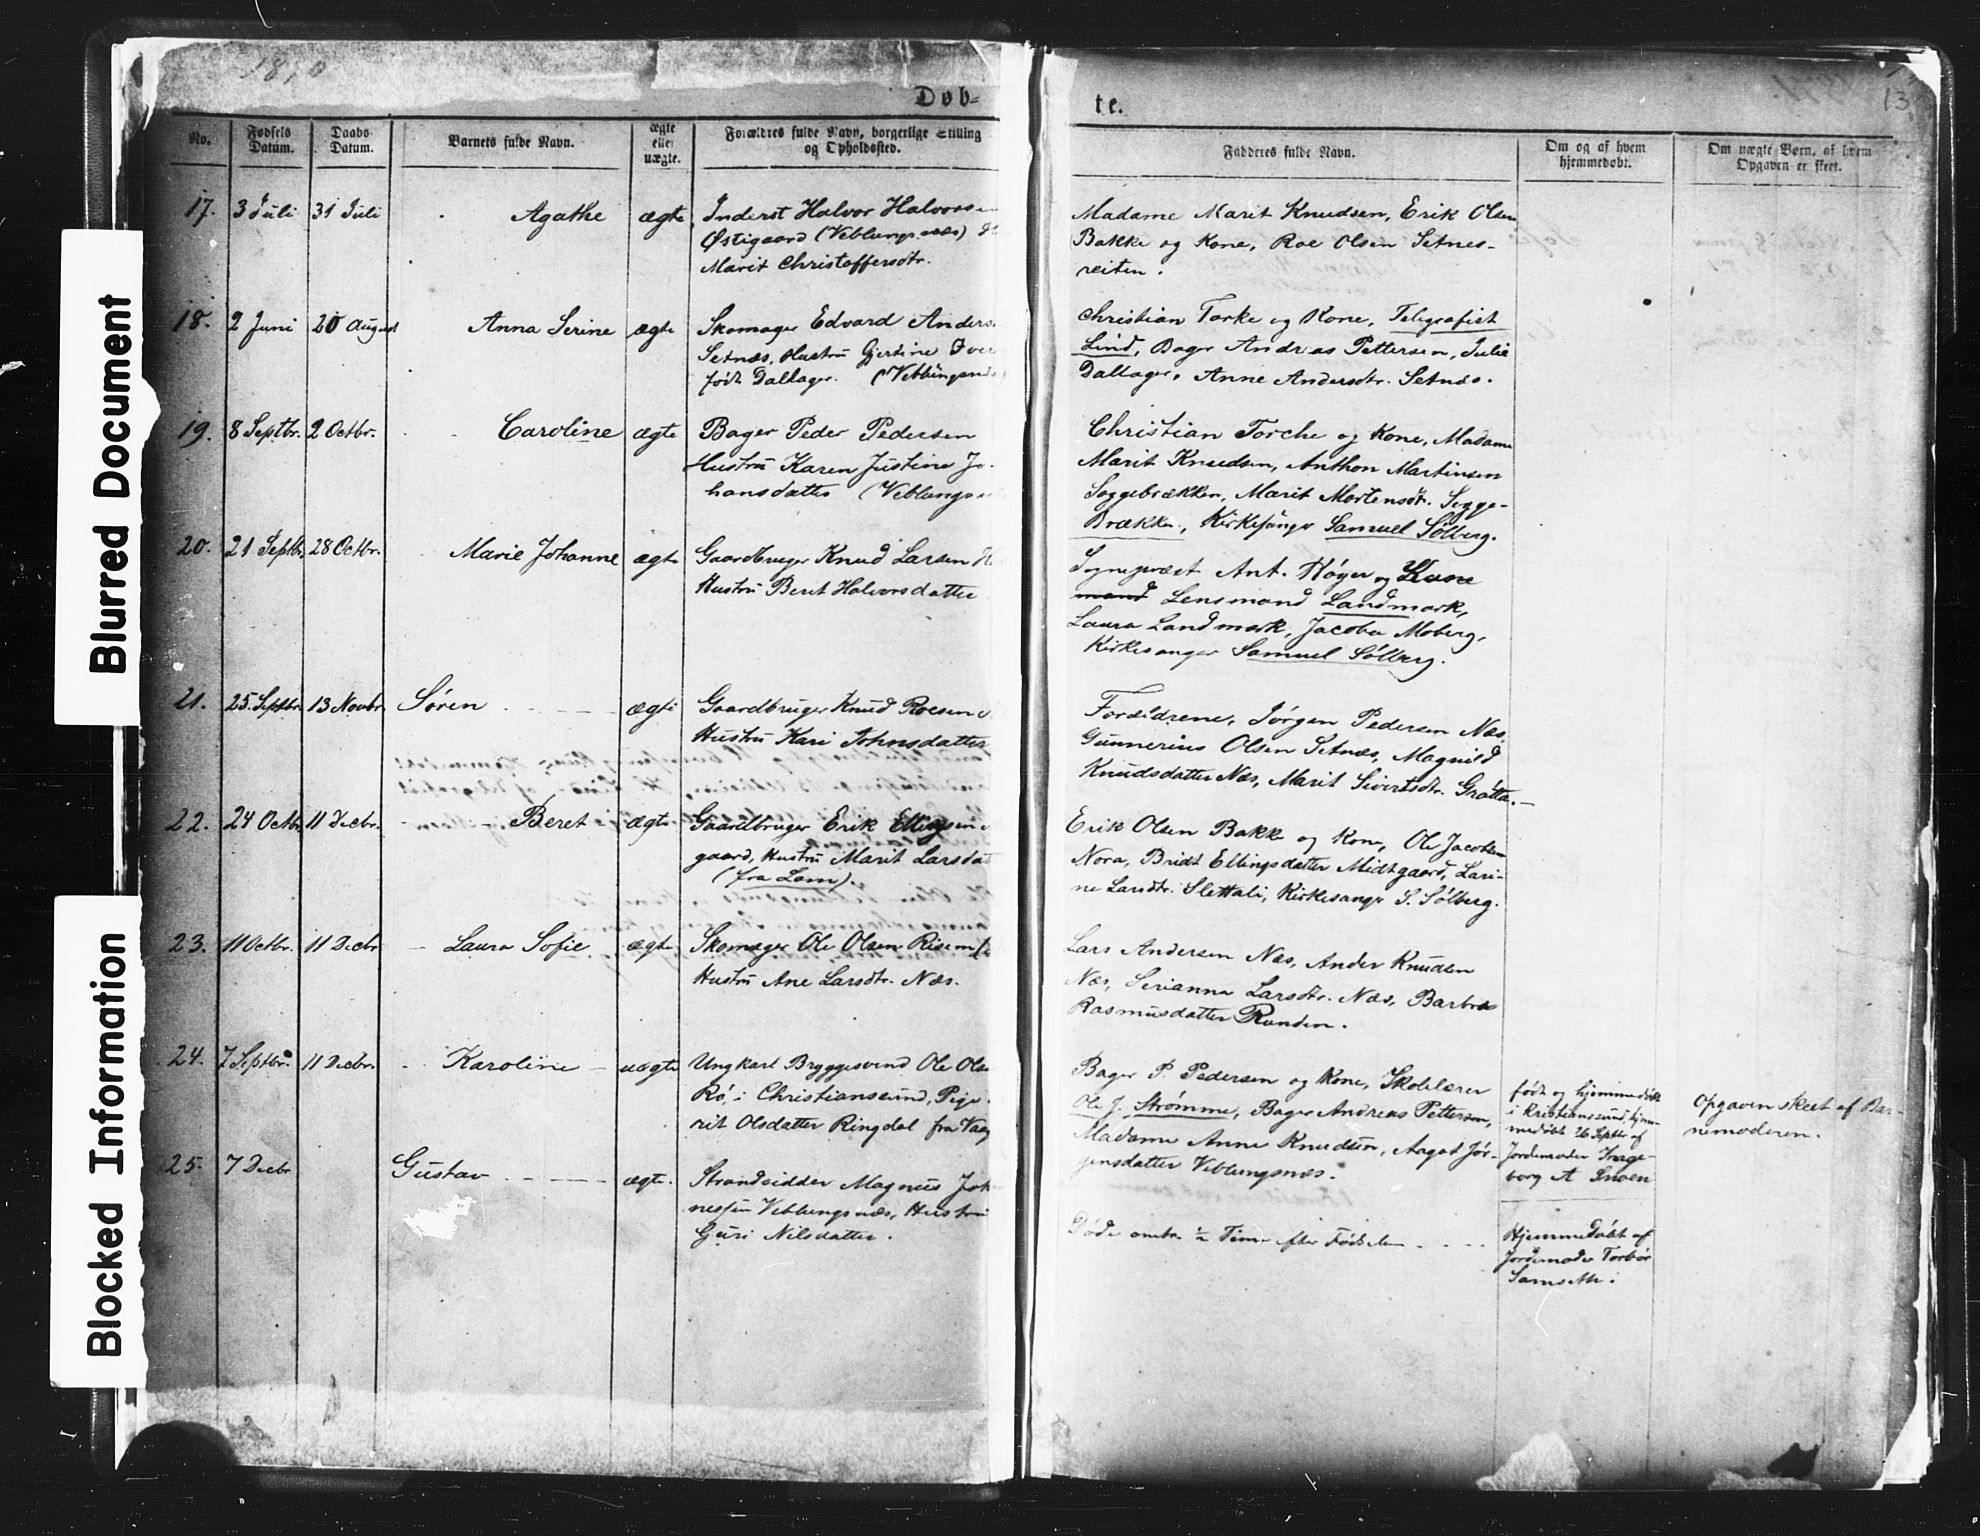 Blurred Document
Blocked Information
Døb=
te.
13
No.
Fødsels
Datum.
Daabs
Datum.
Barnets fulde Navn.
ægte
eller
uægte.
Forældres fulde Navn, borgerlige Stilling
og Opholdssted.
Fadderes fulde Navn.
Om og af hvem
hjemmedøbt.
Om uægte Børn, af hvem
Opgaven er skeet.
17. 3 Juli 31 Juli Agathe ægte
Inderst Halvor Halvorsen
Østigaard (Veblungsnæs)
Marit Christoffersdtr.
Madame Marit Knudsen, Erik Olsen
Bakke og Kone, Roe Olsen Setnes-
reiten.
18. 2 Juni 20 August Anna Serine ægte
Skomager Edvard Anders
Setnæs, Hustru Gjertine Iver
født Dallager. (Veblungsnæs)
Christian Torke og Kone, Telegrafist
Lind, Bager Andreas Pettersen, Julie
Dallager, Anne Andersdtr. Setnæs.
19. 8 Septbr. 2 Octbr. Caroline ægte
Bager Peder Pedersen
Hustru Karen Justine Jo-
hansdatter (Veblungs
Christian Torche og Kone, Madame
Marit Knudsen, Anthon Martinsen
Soggebrækken, Marit Mortensdtr. Sogge-
Brækken, Kirkesanger Samuel Sølberg.
20. 21 Septbr. 28 Octbr. Marie Johanne ægte
Gaardbruger Knud Larsen
Hustru Berit Halvorsdatter
Sogneprest Ant. Høyer og Kone
mand Lensmand Landmark,
Laura Landmark, Jacoba Moberg,
Kirkesanger Samuel Sølberg.
21. 25. Septbr. 13 Novbr. Søren ægte
Gaardbruger Knud Roesen
Hustru Kari Johnsdatter
Forældrene, Jørgen Pedersen Næs,
Gunnerius Olsen Setnæs, Magnild
Knudsdatter Næs, Marit Sivertsdtr. Grøtta.
22. 24 Octbr. 11 Decbr. Beret ægte
Gaardbruger Erik Ellingsen
gaard, Hustru Marit Larsdat
(fra Lom).
Erik Olsen Bakke og Kone, Ole Jacobsen
Nora, Bridt Ellingsdatter Midtgaard, Lari-
ne Larsdtr. Slettali, Kirkesanger S. Sølberg.
23. 11 Octbr. 11 Decbr Laura Sofie ægte
Skomager Ole Olsen Risem
Hustru Ane Larsdtr. Næs.
Lars Andersen Næs, Anders Knudsen
Næs, Serianna Larsdtr. Næs, Barbra
Rasmusdatter Randen.
24. 7 Septbr. 11 Decbr. Karoline uægte
Ungkarl Bryggesvend Ole Ols
Rø, i Christianssund, Pige
rit Olsdatter Ringdal fra Vaag
Bager P. Pedersen og Kone, Skolelærer
Ole J. Strømme, Bager Andreas Pettersen,
Madame Anne Knudsen, Aagot Jør-
gensdatter Veblungsnæs.
født og hjemmedøbt
i Kristianssund, hjem-
medøbt 26 Septbr af
Jordemoder Inge-
borg A Snoen
Opgaven skeet af Bar-
nemoderen.
25. 7 Decbr Gustav ægte.
Strandsidder Magnus Joh
nessen Veblungsnæs, Hustru
Guri Nilsdatter.
Døde omtr. ½ Time efter Fødselen
Hjemmedøbt af
Jordemoder Torbør
Samseth.